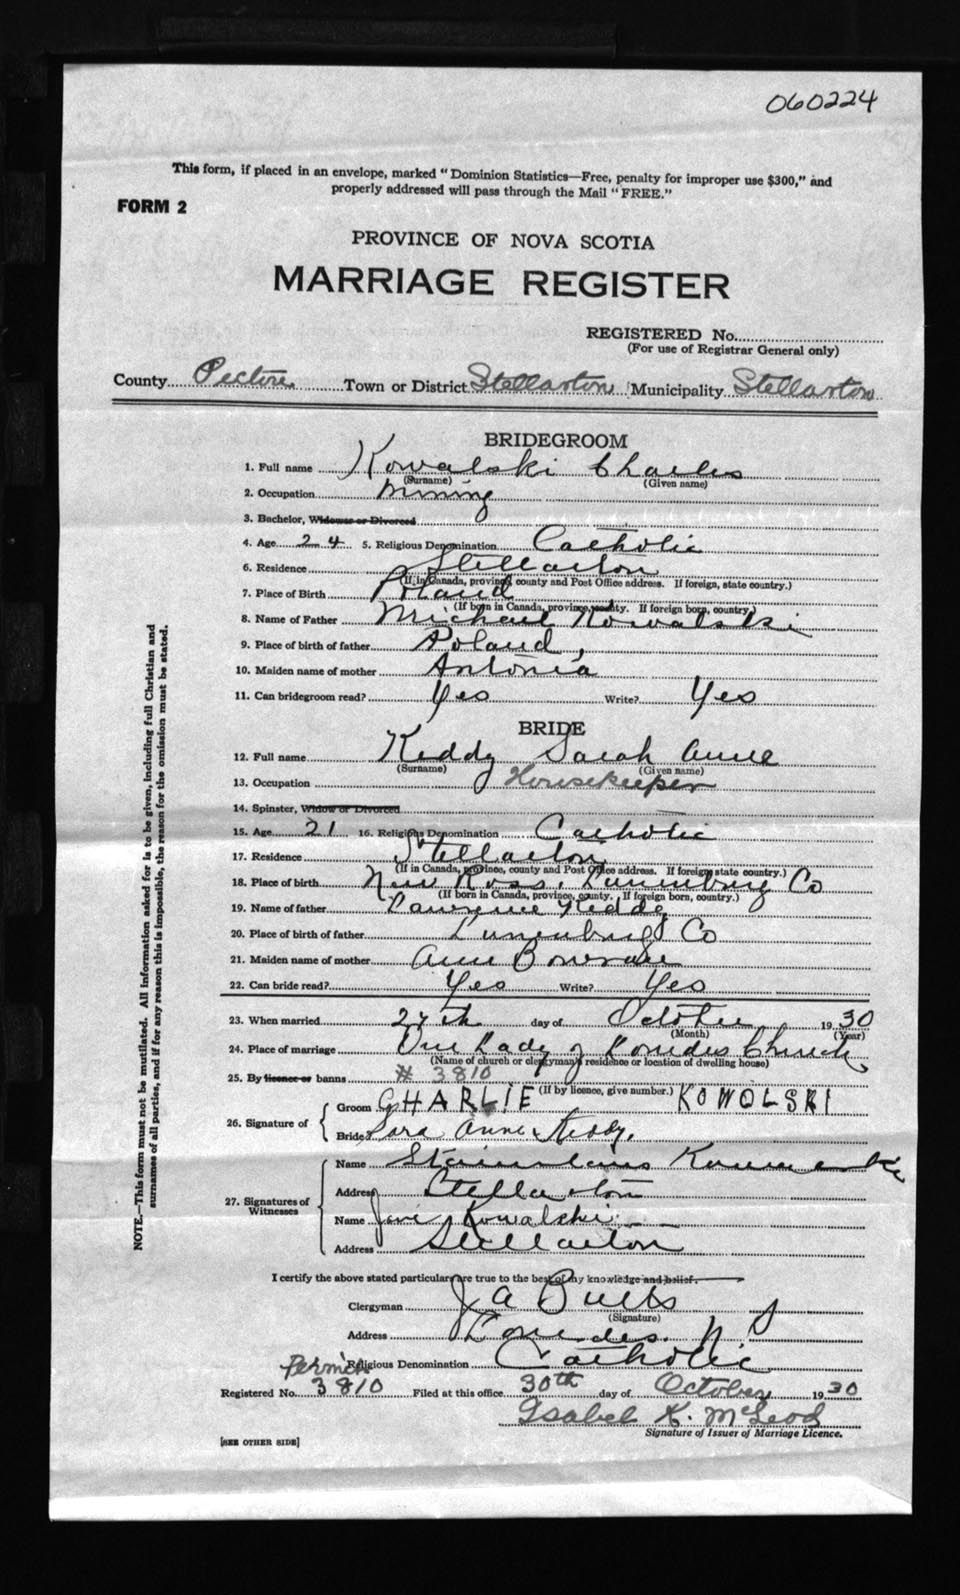 060224
This form, if placed in an envelope, marked "Dominion Statistics—Free, penalty for improper use $300," and
properly addressed will pass through the Mail "FREE."
FORM 2
PROVINCE OF NOVA SCOTIA
MARRIAGE REGISTER
REGISTERED No.
(For use of Registrar General only)
County Pictou Town or District Stellarton Municipality Stellarton
BRIDEGROOM
1. Full name Kowalski Charles
(Surname) (Given name)
2. Occupation Mining
3. Bachelor, Widower or Divorced
4. Age 24 5. Religious Denomination Catholic
6. Residence Stellarton
(If in Canada, province, county and Post Office address. If foreign, state country.)
7. Place of Birth Poland
(If born in Canada, province, county. If foreign born, country.)
8. Name of Father Michael Kowalski
9. Place of birth of father Poland,
10. Maiden name of mother Antonia
11. Can bridegroom read? Yes Write? Yes
BRIDE
12. Full name Keddy Sarah Anne
(Surname) (Given name)
13. Occupation Housekeeper
14. Spinster, Widow or Divorced
15. Age 21 16. Religious Denomination Catholic
17. Residence Stellarton
(If in Canada, province, county and Post Office address. If foreign state country.)
18. Place of birth New Ross, Lunenburg Co
(If born in Canada, province, county. If foreign born, country.)
19. Name of father Lawrence Keddy
20. Place of birth of father Lunenburg Co
21. Maiden name of mother Ann
22. Can bride read? Yes Write? Yes
23. When married 27th day of October 1930
(Month) (Year)
24. Place of marriage Our Lady of Lourdes Church
(Name of church or clergyman's residence or location of dwelling house)
25. By licence or banns # 3810
(If by licence, give number.)
26. Signature of
Groom CHARLIE KOWOLSKI
Bride Sara Anne Keddy.
27. Signatures of Witnesses
Name
Address Stellarton
Name Kowalski
Address Stellarton
I certify the above stated particulars are true to the best of my knowledge and belief.
Clergyman J A Butts
(Signature)
Address Lourdes. N S
Religious Denomination Catholic
Permit
Registered No. 3810 Filed at this office 30th day of October 1930
Isabel K. McLeod
Signature of Issuer of Marriage Licence.
[SEE OTHER SIDE]
NOTE.—This form must not be mutilated. All information asked for is to be given, including full Christian and
surnames of all parties, and if for any reason this is impossible, the reason for the omission must be stated.